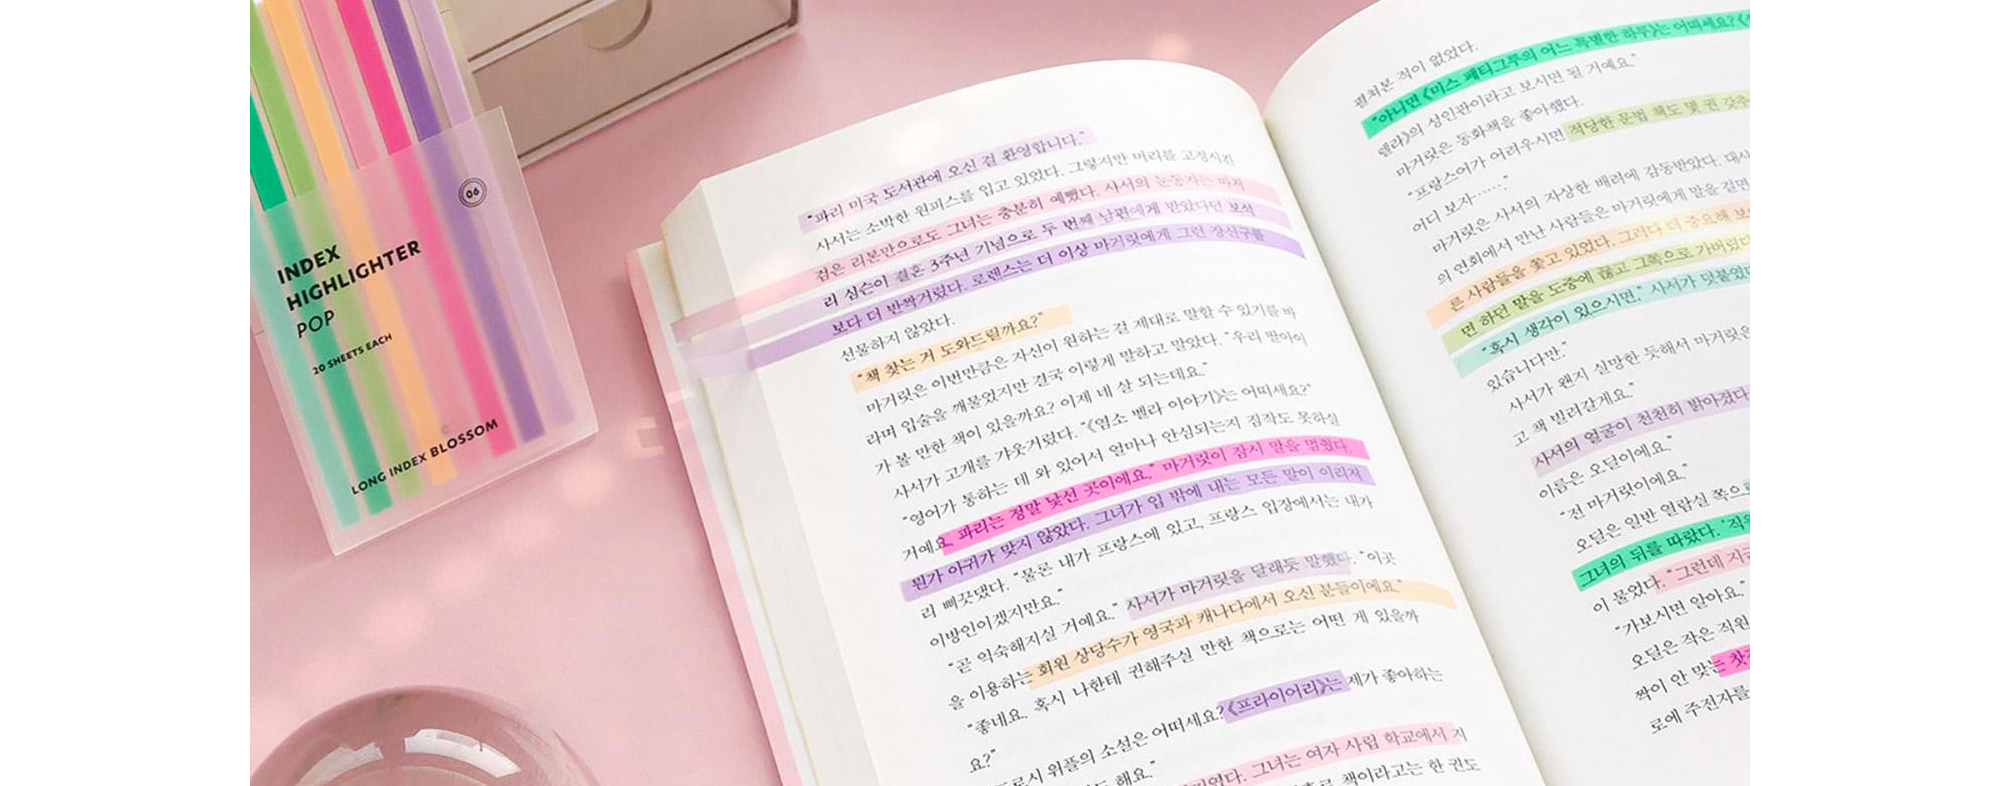 06
INDEX
HIGHLIGHTER
POP
20 SHEETS EACH
LONG INDEX BLOSSOM
"파리 미국 도서관에 오신 걸 환영합니다."
사서는 소박한 원피스를 입고 있었다. 그렇지만 머리를 고정시킨
검은 리본만으로도 그녀는 충분히 예뻤다. 사서의 눈동자는 마치
리 심슨이 결혼 3주년 기념으로 두 번째 남편에게 받았다던 보석
보다 더 반짝거렸다. 로렌스는 더 이상 마거릿에게 그런 장신구를
선물하지 않았다.
"책 찾는 거 도와드릴까요?"
마거릿은 이번만큼은 자신이 원하는 걸 제대로 말할 수 있기를 바
라며 입술을 깨물었지만 결국 이렇게 말하고 말았다. "우리 딸아이
가 볼 만한 책이 있을까요? 이제 네 살 되는데요."
사서가 고개를 갸웃거렸다. "《염소 벨라 이야기》는 어떠세요?"
"영어가 통하는 데 와 있어서 얼마나 안심되는지 짐작도 못하실
거예요. 파리는 정말 낯선 곳이에요." 마거릿이 잠시 말을 멈췄다.
뭔가 아귀가 맞지 않았다. 그녀가 입 밖에 내는 모든 말이 이리저
리 삐끗댔다. "물론 내가 프랑스에 있고, 프랑스 입장에서는 내가
이방인이겠지만요."
"곧 익숙해지실 거예요." 사서가 마거릿을 달래듯 말했다. "이곳
을 이용하는 회원 상당수가 영국과 캐나다에서 오신 분들이에요."
"좋네요. 혹시 나한테 권해주실 만한 책으로는 어떤 게 있을까
요?"
도로시 위플의 소설은 어떠세요? 《프라이어리》는 제가 좋아하는
해요."
그녀는 여자 사립 학교에서 지
책이라고는 한 권도
펼쳐본 적이 없었다.
"아니면 《미스 페티그루의 어느 특별한 하루》는 어떠세요?
렐라》의 성인판이라고 보시면 될 거예요."
마거릿은 동화책을 좋아했다.
"프랑스어가 어려우시면 적당한 문법 책도 몇 권 갖추
어디 보자……."
마거릿은 사서의 자상한 배려에 감동받았다. 대사
의 연회에서 만난 사람들은 마거릿에게 말을 걸면
른 사람들을 쫓고 있었다. 그러다 더 중요해 보
면 하던 말을 도중에 끊고 그쪽으로 가버렸다
"혹시 생각이 있으시면," 사서가 덧붙였다
있습니다만."
사서가 왠지 실망한 듯해서 마거릿은
고 책 빌려갈게요."
사서의 얼굴이 천천히 밝아졌다
이름은 오딜이에요."
"전 마거릿이에요."
오딜은 일반 열람실 쪽으로
그녀의 뒤를 따랐다. "직원
이 물었다. "그런데 지금
"가보시면 알아요."
오딜은 작은 직원
짝이 안 맞는 찻
로에 주전자를